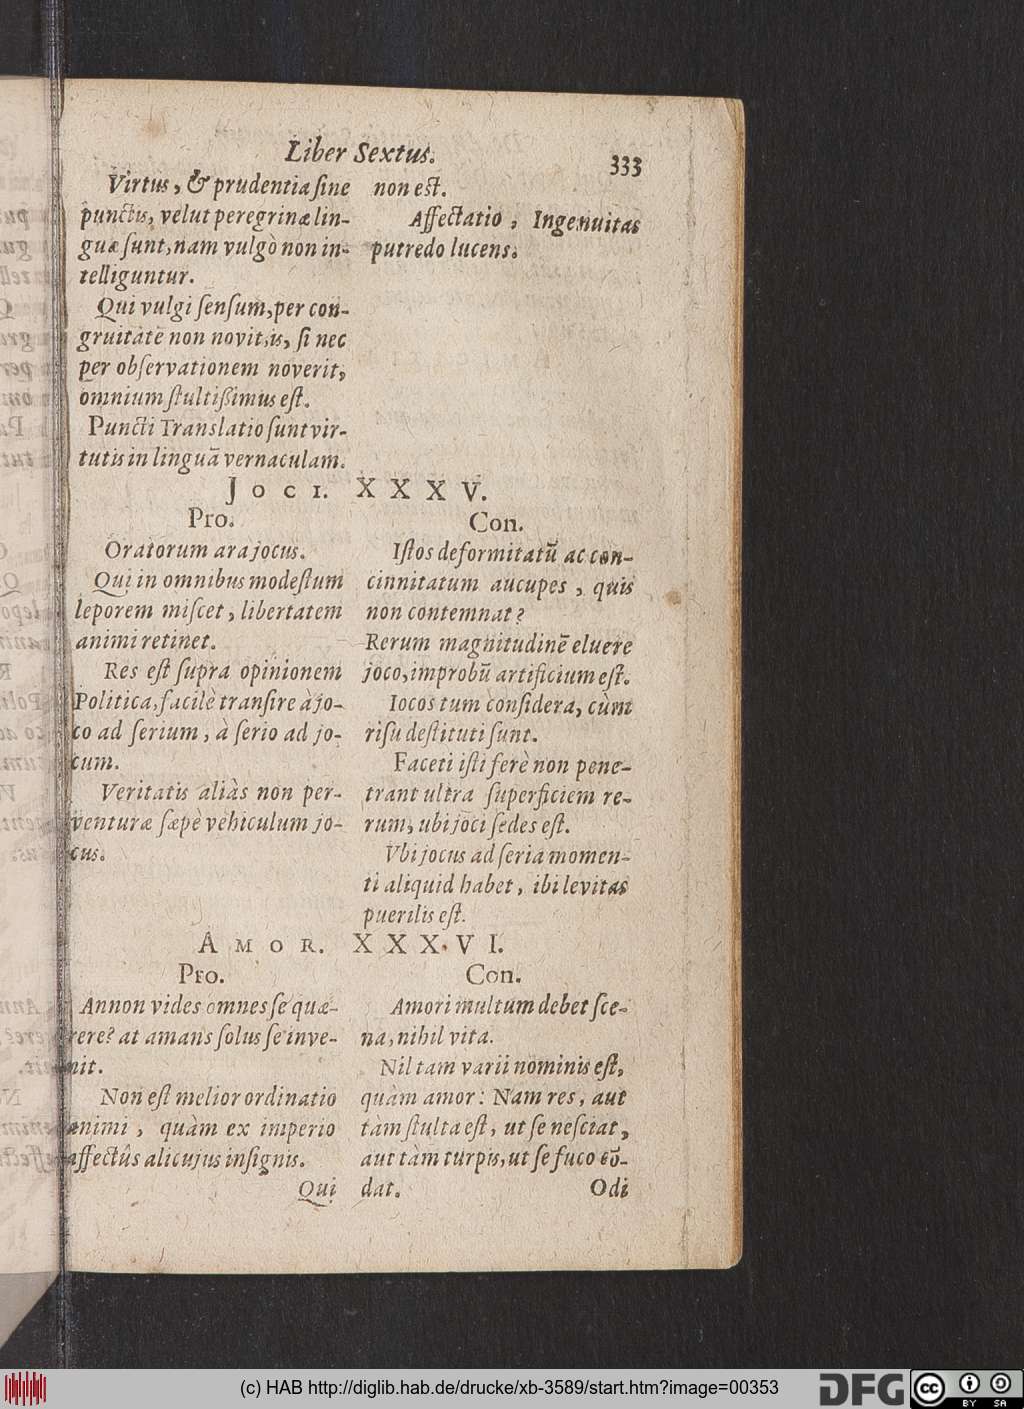 Liber Sextus.
333
Virtus, & prudentia ſine
punctis, velut peregrinæ lin-
guæ ſunt, nam vulgò non in-
telliguntur.
Qui vulgi ſenſum, per con-
gruitatē non novit, is, ſi nec
per obſervationem noverit,
omnium ſtultiſſimus eſt.
Puncti Translatio ſunt vir-
tutis in linguā vernaculam.
non eſt.
Affectatio, Ingenuitas
putredo lucens.
JOCI. XXXV.
Pro.
Oratorum ara jocus.
Qui in omnibus modeſtum
leporem miſcet, libertatem
animi retinet.
Res eſt ſupra opinionem
Politica, facilè tranſire à jo-
co ad ſerium, à ſerio ad jo-
cum.
Veritatis aliàs non per-
venturæ ſæpè vehiculum jo-
cus.
Con.
Iſtos deformitatū ac con-
cinnitatum aucupes, quis
non contemnat?
Rerum magnitudinē eluere
joco, improbū artificium eſt.
Iocos tum conſidera, cùm
riſu deſtituti ſunt.
Faceti iſti ferè non pene-
trant ultra ſuperficiem re-
rum, ubi joci ſedes eſt.
Vbi jocus ad ſeria momen-
ti aliquid habet, ibi levitas
puerilis eſt.
AMOR. XXXVI.
Pro.
Annon vides omnes ſe quæ-
rere? at amans ſolus ſe inve-
nit.
Non eſt melior ordinatio
animi, quàm ex imperio
affectûs alicujus inſignis.
Qui
Con.
Amori multum debet ſce-
na, nihil vita.
Nil tam varii nominis eſt,
quàm amor: Nam res, aut
tam ſtulta eſt, ut ſe neſciat,
aut tàm turpis, ut ſe fuco cō-
dat.
Odi
(c) HAB http://diglib.hab.de/drucke/xb-3589/start.htm?image=00353
DFG
cc
BY SA